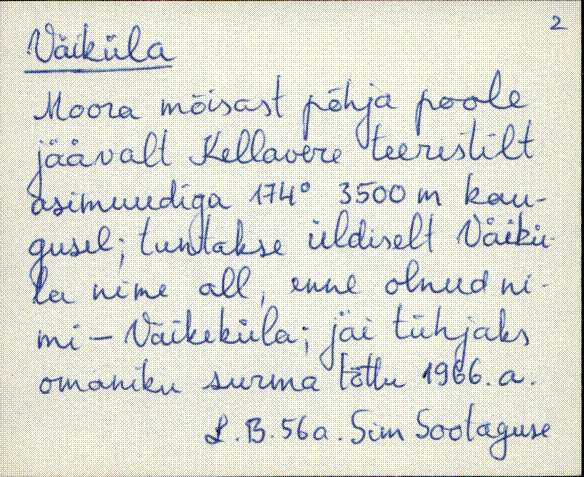 2
Väiküla
Moora mõisast põhja poole
jäävalt Kellavere teeristilt
asimuudiga 174° 3500 m kau-
gusel; tuntakse üldiselt Väikü-
la nime all, enne olnud ni-
mi – Väikeküla; jäi tühjaks
omaniku surma tõttu 1966. a.
L.B. 56 a. Sim Sootaguse